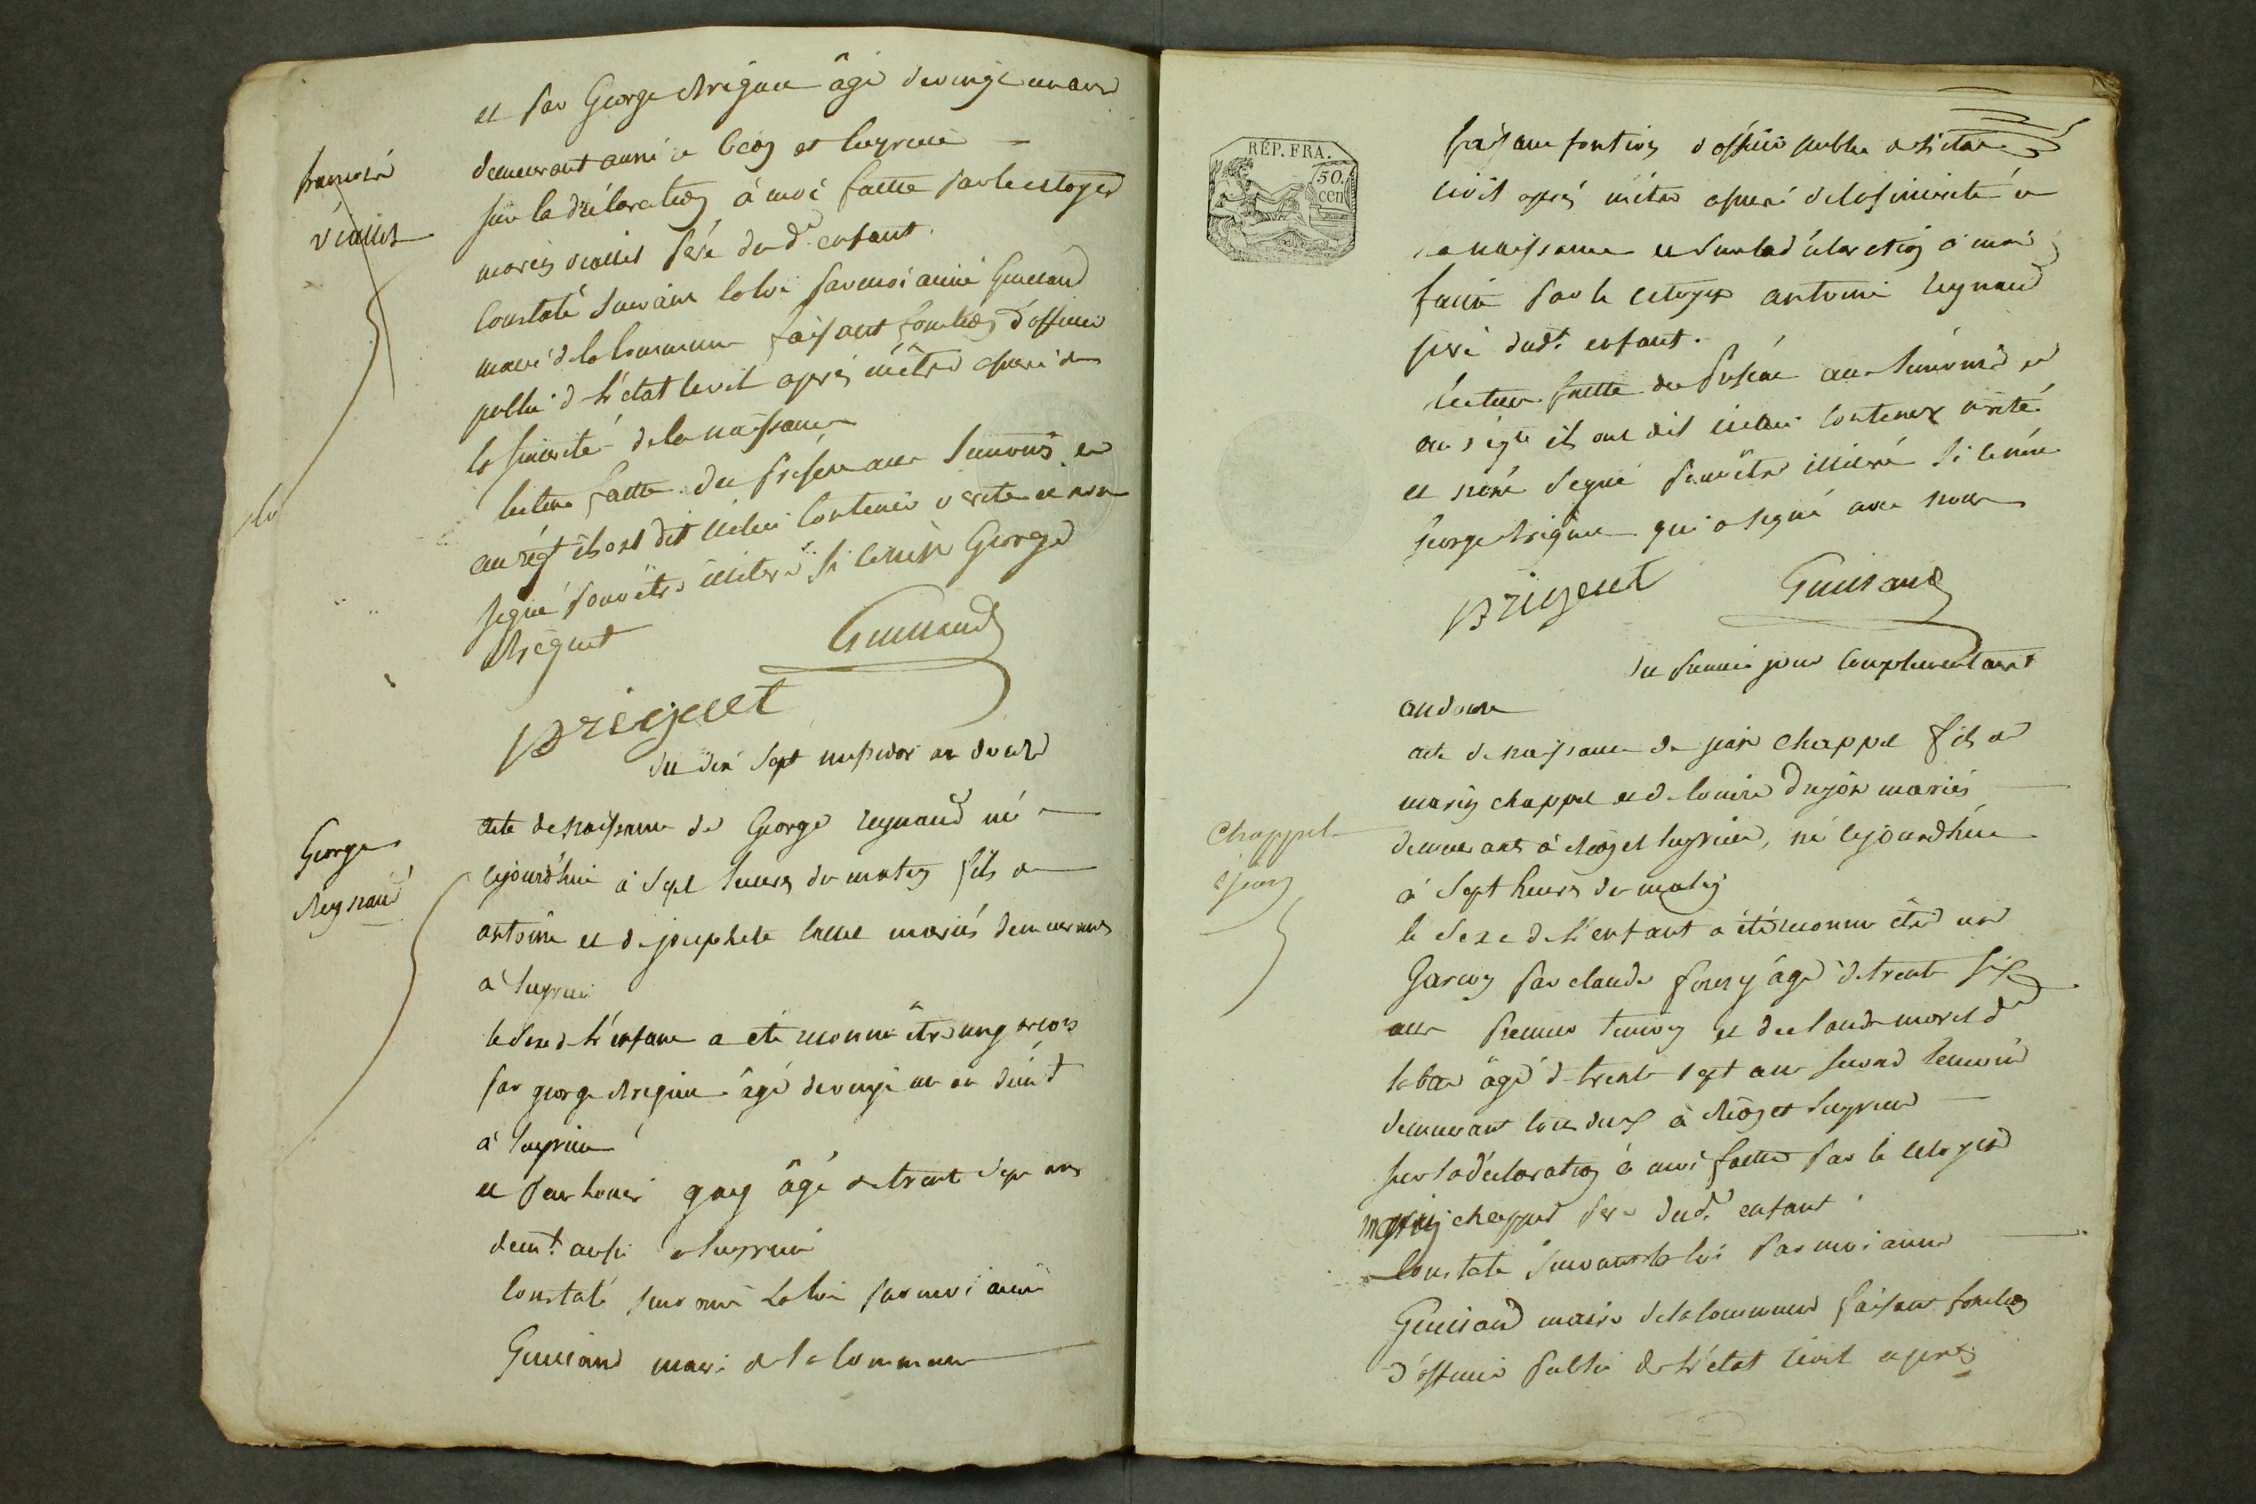 et par George Briguet âgé de vingt un ans
demeurant aussi a et lugrein
sur la déclaration à moi faitte par le citoyen
marin viollet père du dt enfant
Constaté suivant la loi par moi aimé Guilland
maire de la Commune faisant fonction d'officier
public de l'état civil après m'être assuré de
la sincerité de la naissance
lecture faitte du présent aux temoins et
au réqt ils ont dit icelui contenir verité et non
segné pour être illiteré si ce n'est George
Briguet
Guilland
Briguet
françois
viollet
du dix sept messidor an douze
George
Reynaud
acte de naissance de George reynaud né
cejourd'hui à sept heures du matin fils de
antoine et de josephete mariés demeurants
à lugrin
le sexe de l'enfant a été reconnu être un garçon
par george Briguet âgé de vingt un an demt
à lugrin
et par gay âgé de trente sept ans
demt. aussi a lugrin
Constaté suivant La loi par moi aimé
Guilland maire de la Commune
RÉP. FRA.
50.
cen
faisant fontion d'officier public de l'état
civil après m'être assuré de la sincerité de
la naissance et sur la déclaration à moi
faitte par le citoyen antoine reynaud
père dudt. enfant.
lecture faitte du présent aux temoins et
au réqt ils ont dit icelui contenir verité
et non segné pour être illiteré si ce n'est
George Briguet qui a segné avec nous
Briguet Guilland
du premier jour complementaire
an douze
acte de naissance de jean chappel fils de
marin chappel et de louise dujon mariés
Chappel
jean
demeurants à et lugrin, né cejourd'hui
à sept heures du matin
le sexe de l'enfant a été reconnu être un
Garçon par claude âgé de trente six
ans premier temoin et de claude morel
âgé de trente sept ans second temoin
demeurant tous deux à et lugrin
sur la déclaration à moi faitte par le citoyen
marin chappel père dudt. enfant
Constaté suivant la loi par moi aimé
Guilland maire de la Commune faisant fonction
d'officier public de l'état civil après